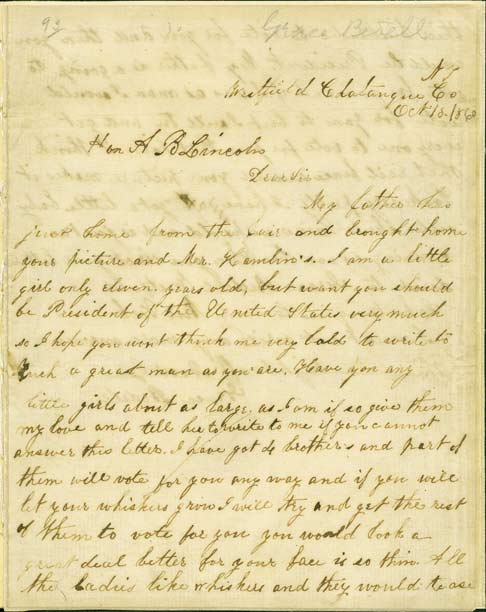 92 Grace Bedell
N Y
Westfield Chatauque Co
Oct 15, 1860
Hon A B Lincoln
Dear Sir
My father has
just home from the fair and brought home
your picture and Mr. Hamlin's. I am a little
girl only eleven years old, but want you should
be President of the United States very much
so I hope you wont think me very bold to write to
such a great man as you are. Have you any
little girls about as large as I am if so give them
my love and tell her to write to me if you cannot
answer this letter. I have got 4 brothers and part of
them will vote for you any way and if you will
let your whiskers grow I will try and get the rest
of them to vote for you you would look a
great deal better for your face is so thin. All
the ladies like whiskers and they would tease